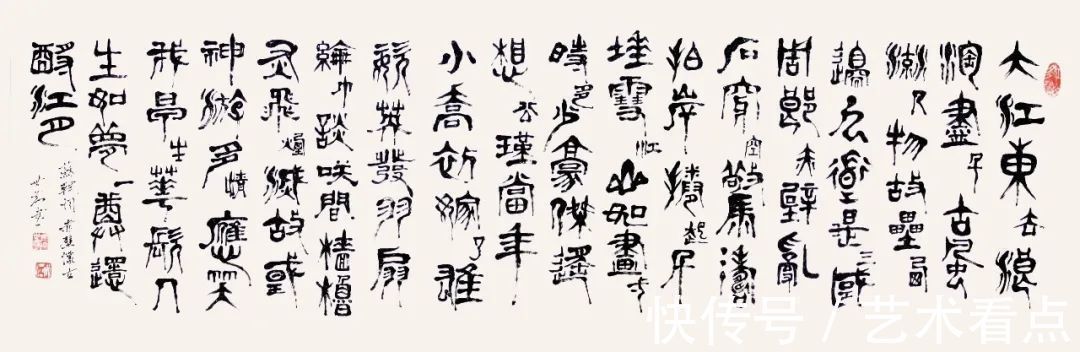 大江東去浪
淘盡千古風
流人物故壘西
邊人道是三國
周郎赤壁亂
石穿空驚濤
拍岸捲起千
堆雪江山如畫一
時多少豪傑遙
想公瑾當年
小喬初嫁了雄
姿英發羽扇
綸巾談咲間檣櫓
灰飛煙滅故國
神遊多情應笑
我早生華髮人
生如夢一尊還
酹江月
蘇軾詞赤壁懷古
快传号 / 艺术看点